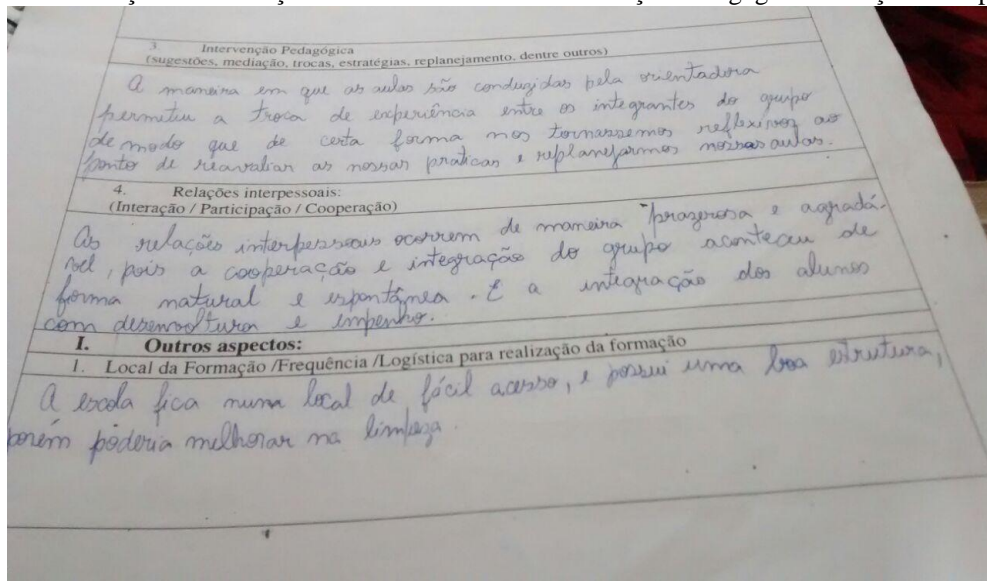 3. Intervenção Pedagógica
(sugestões, mediação, trocas, estratégias, replanejamento, dentre outros)
A maneira em que as aulas são conduzidas pela orientadora
permitiu a troca de experiência entre os integrantes do grupo
de modo que de certa forma nos tornassemos reflexivos ao
ponto de reavaliar as nossas praticas e replanejarmos nossas aulas.
4. Relações interpessoais:
(Interação / Participação / Cooperação)
As relações interpessoais ocorrem de maneira prazerosa e agradá-
vel, pois a cooperação e integração do grupo aconteceu de
forma natural e espontânea. E a integração dos alunos
com desenvoltura e empenho.
I. Outros aspectos:
1. Local da Formação /Frequência /Logística para realização da formação
A escola fica num local de fácil acesso, e possui uma boa estrutura,
porém poderia melhorar na limpeza.